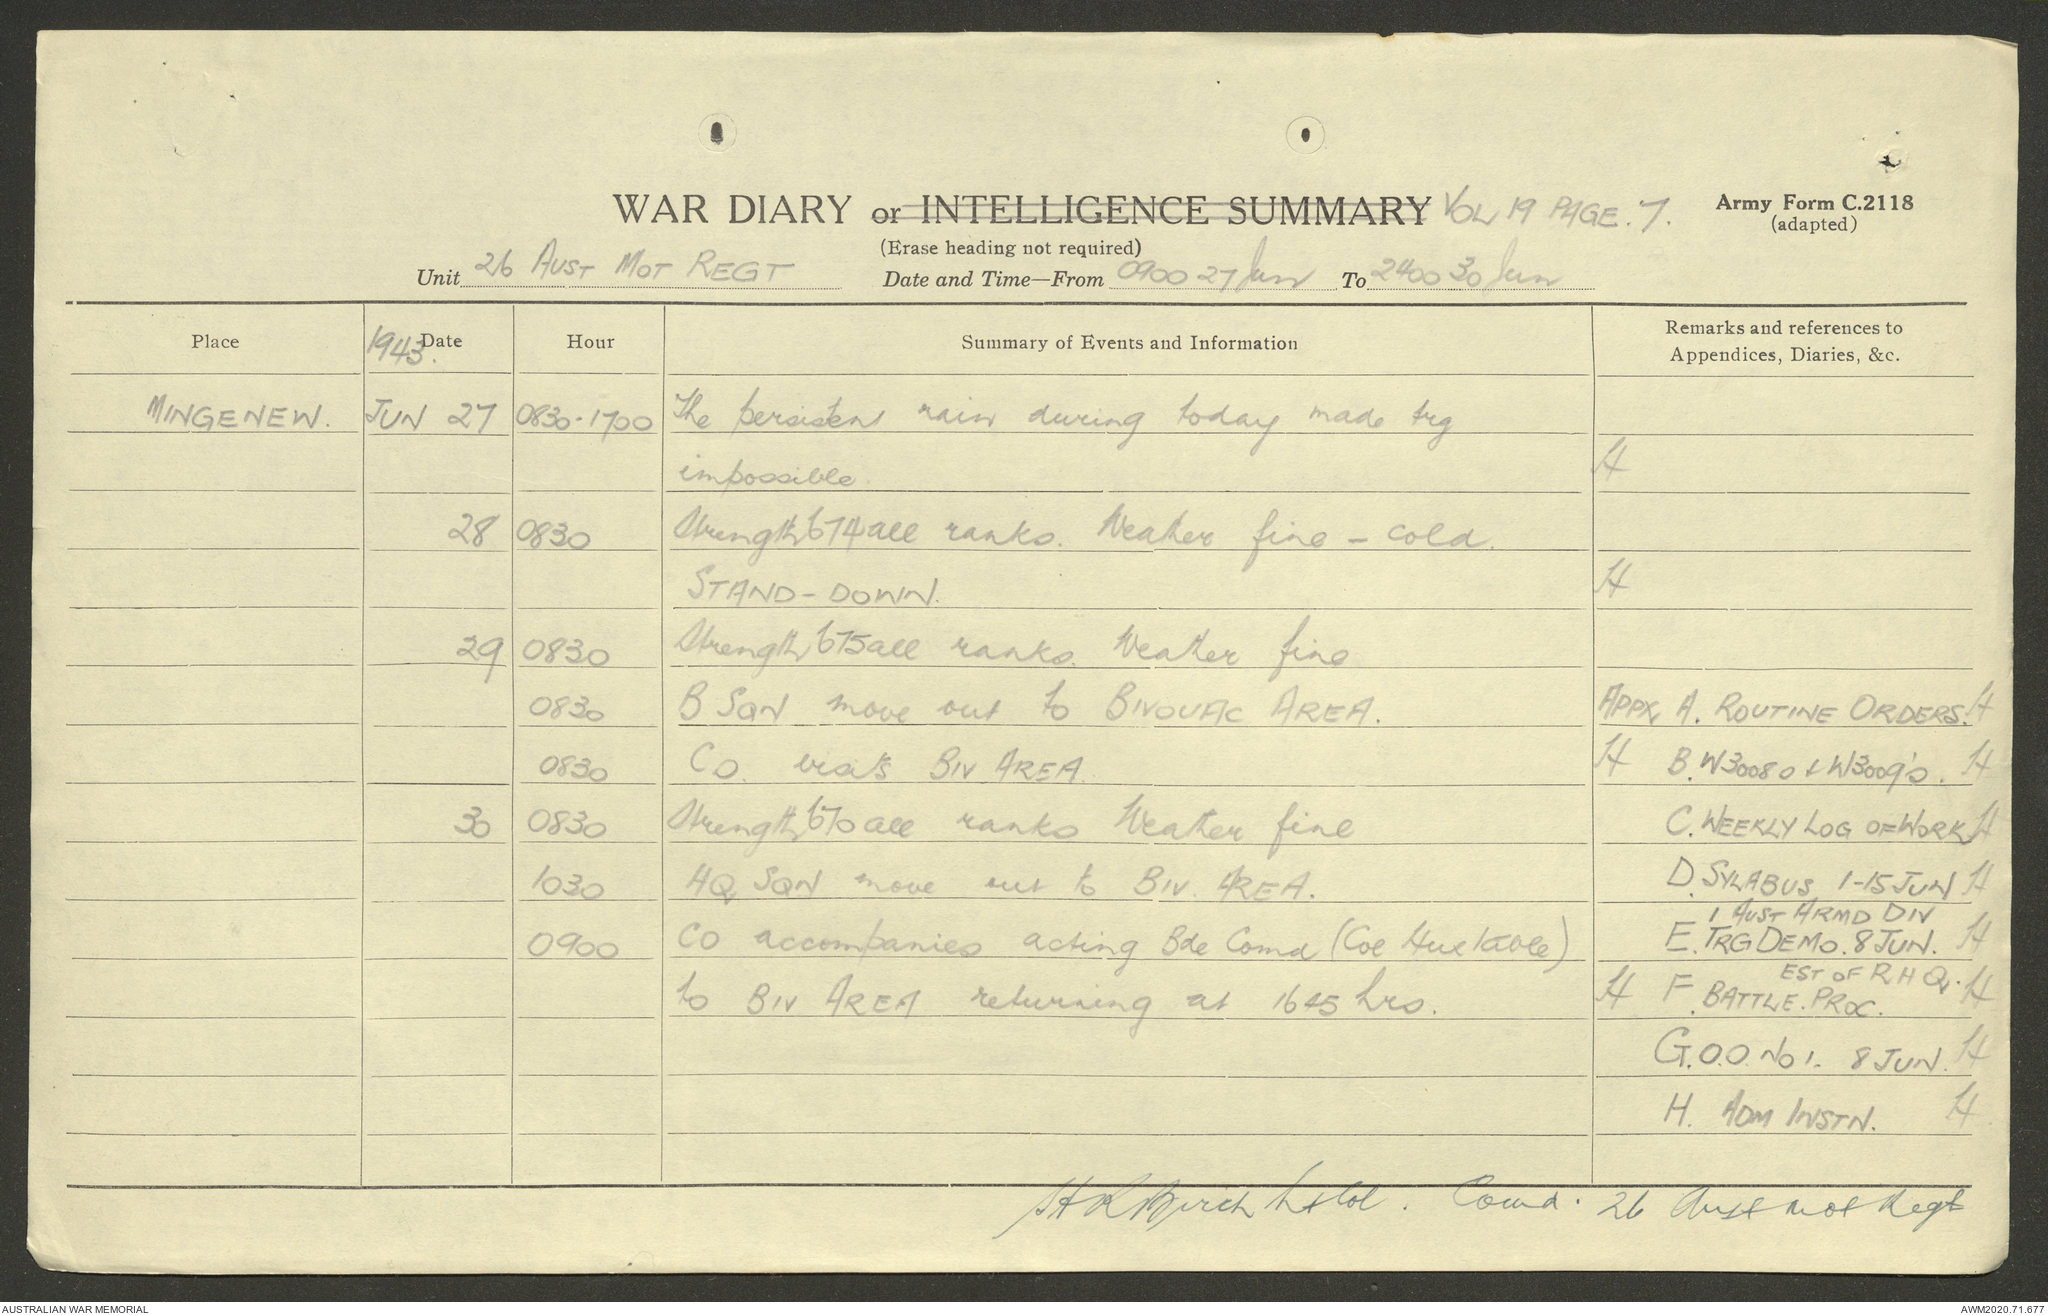 WAR DIARY or INTELLIGENCE SUMMARY VOL 19 PAGE. 7.
Army Form C.2118
(adapted)
(Erase heading not required)
Unit 26 AUST MOT REGT Date and Time—From 0900 27 Jun To 2400 30 Jun
Place 1943. Date Hour Summary of Events and Information Remarks and references to
Appendices, Diaries, &c.
MINGENEW. JUN 27 0830-1700 The persistent rain during today made trg
impossible. H
28 0830 Strength 674 all ranks. Weather fine - cold.
STAND-DOWN. H
29 0830 Strength 675 all ranks. Weather fine
0830 B SQN move out to BIVOUAC AREA. APPX A. ROUTINE ORDERS. H
0830 CO. visits BIV AREA. H B. W3008s & W3009's. H
30 0830 Strength 670 all ranks Weather fine C. WEEKLY LOG OF WORK H
1030 HQ SQN move out to BIV. AREA. D. SYLABUS 1-15 JUN H
1 AUST ARMD DIV
0900 CO accompanies acting Bde Comd (Col Huxtable) E. TRG DEMO. 8 JUN. H
EST OF R H Q.
to BIV AREA returning at 1645 hrs. H F. BATTLE. PROC. H
G. O.O. No 1. 8 JUN. H
H. ADM INSTN. H
H R Birch Lt Col. Comd. 26 Aust Mot Regt
AUSTRALIAN WAR MEMORIAL
AWM2020.71.677